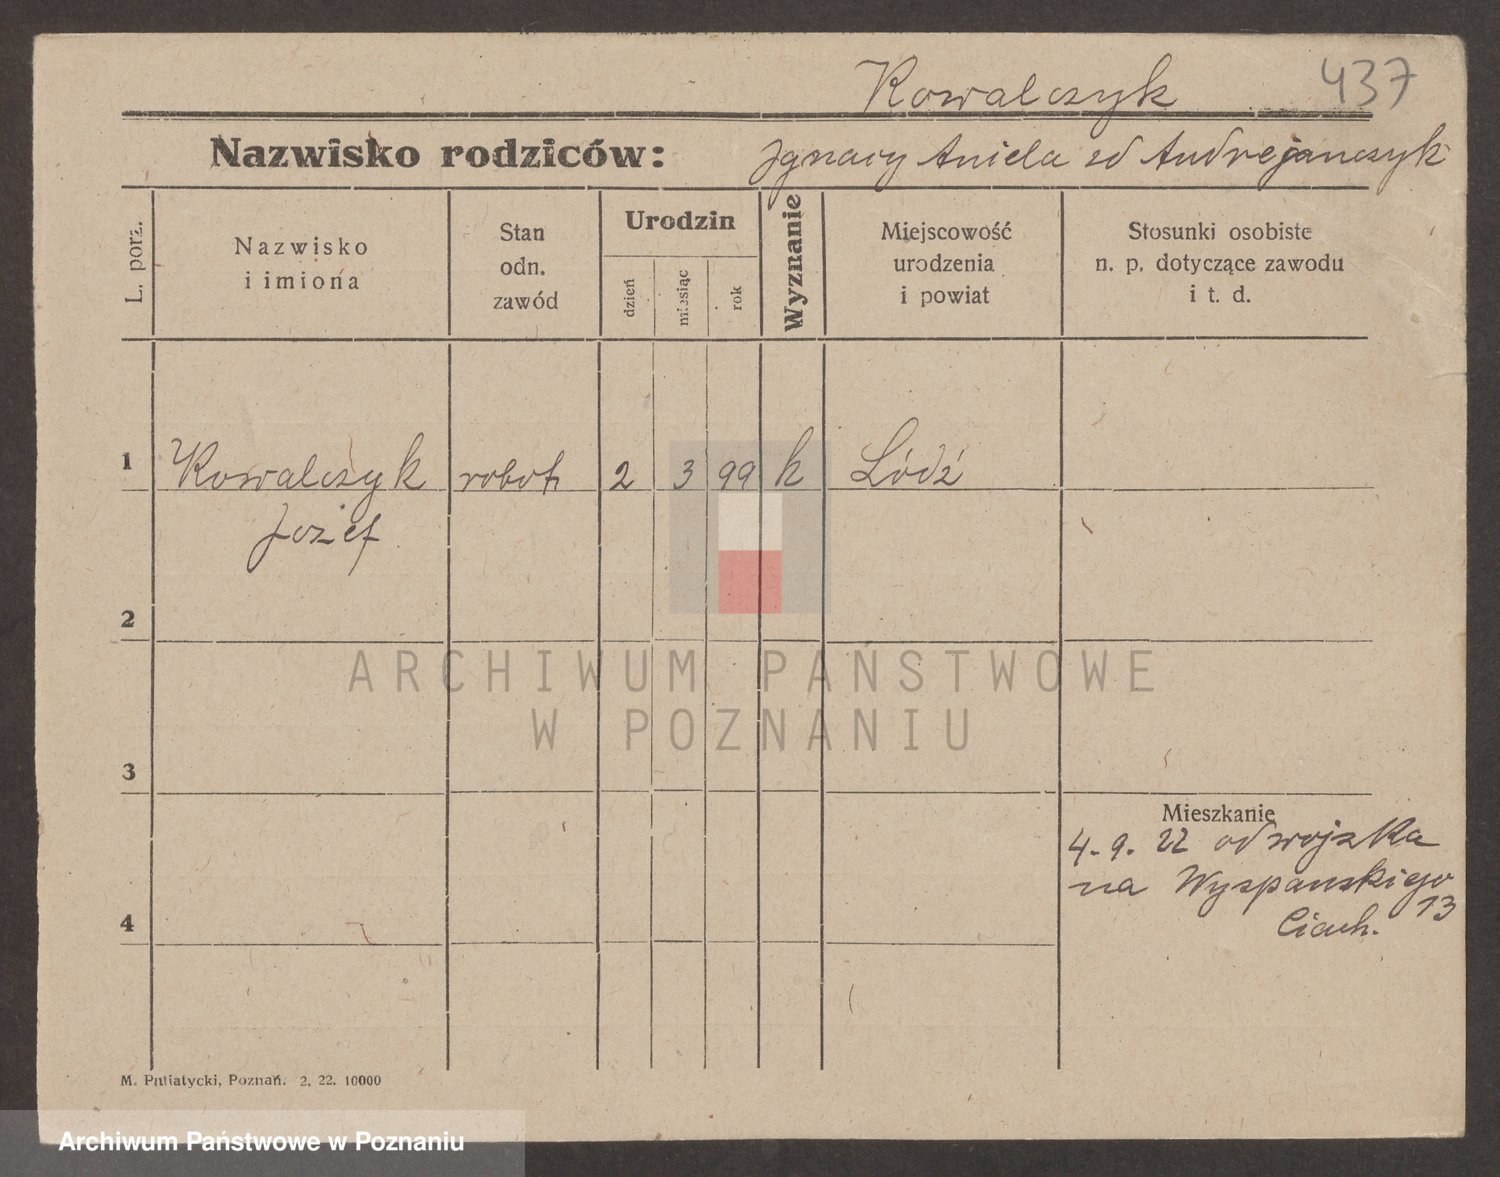 Kowalczyk 437
Nazwisko rodziców: Ignacy Aniela zd Andrejanczyk
L. porz.
Nazwisko
i imiona
Stan
odn.
zawód
Urodzin
dzień
miesiąc
rok
Wyznanie
Miejscowość
urodzenia
i powiat
Stosunki osobiste
n. p. dotyczące zawodu
i t. d.
1 Kowalczyk robotn 2 3 99 k Łódź
Jozef
2
3
4
Mieszkanie
4. 9. 22 od wojska
na Wyspanskiego
13
Ciach.
ARCHIWUM PAŃSTWOWE
W POZNANIU
M. Putiatycki, Poznań. 2. 22. 10000
Archiwum Państwowe w Poznaniu